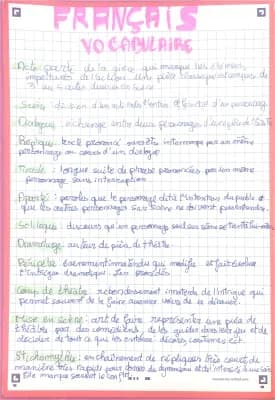 FRANÇAIS
VOCABULAIRE
Acte: partie de la pièce qui marque les étapes
importantes de l'action. Une pièce classique
Scène: division d'un acte entre l'entrée et la sortie d'un personnage
Dialogue: échange entre deux personnages
Réplique: texte prononcé sans être interrompu par un même
personnage au cours d'un dialogue
Tirade: longue suite de phrases prononcées par un même
personnage sans interruption
Aparté: paroles que le personnage dit à l'intention du public et
que les autres personnages sur scène ne doivent pas entendre
Soliloque: discours qu'un personnage seul sur scène
Dramaturge: auteur de pièce de théâtre
Péripétie: évènement inattendu qui modifie et fait évoluer
l'intrigue dramatique.
Coup de théâtre: retournement inattendu de l'intrigue qui
permet souvent de le faire avancer
Mise en scène: art de faire représenter une pièce de
théâtre par des comédiens, de les guider dans leur jeu et de
décider de tout ce qui les entoure: décors, costumes ect.
Stichomythie: enchaînement de répliques très courtes de
manière très rapide pour donner du dynamisme et de l'intensité à une scène
Elle marque souvent le conflit